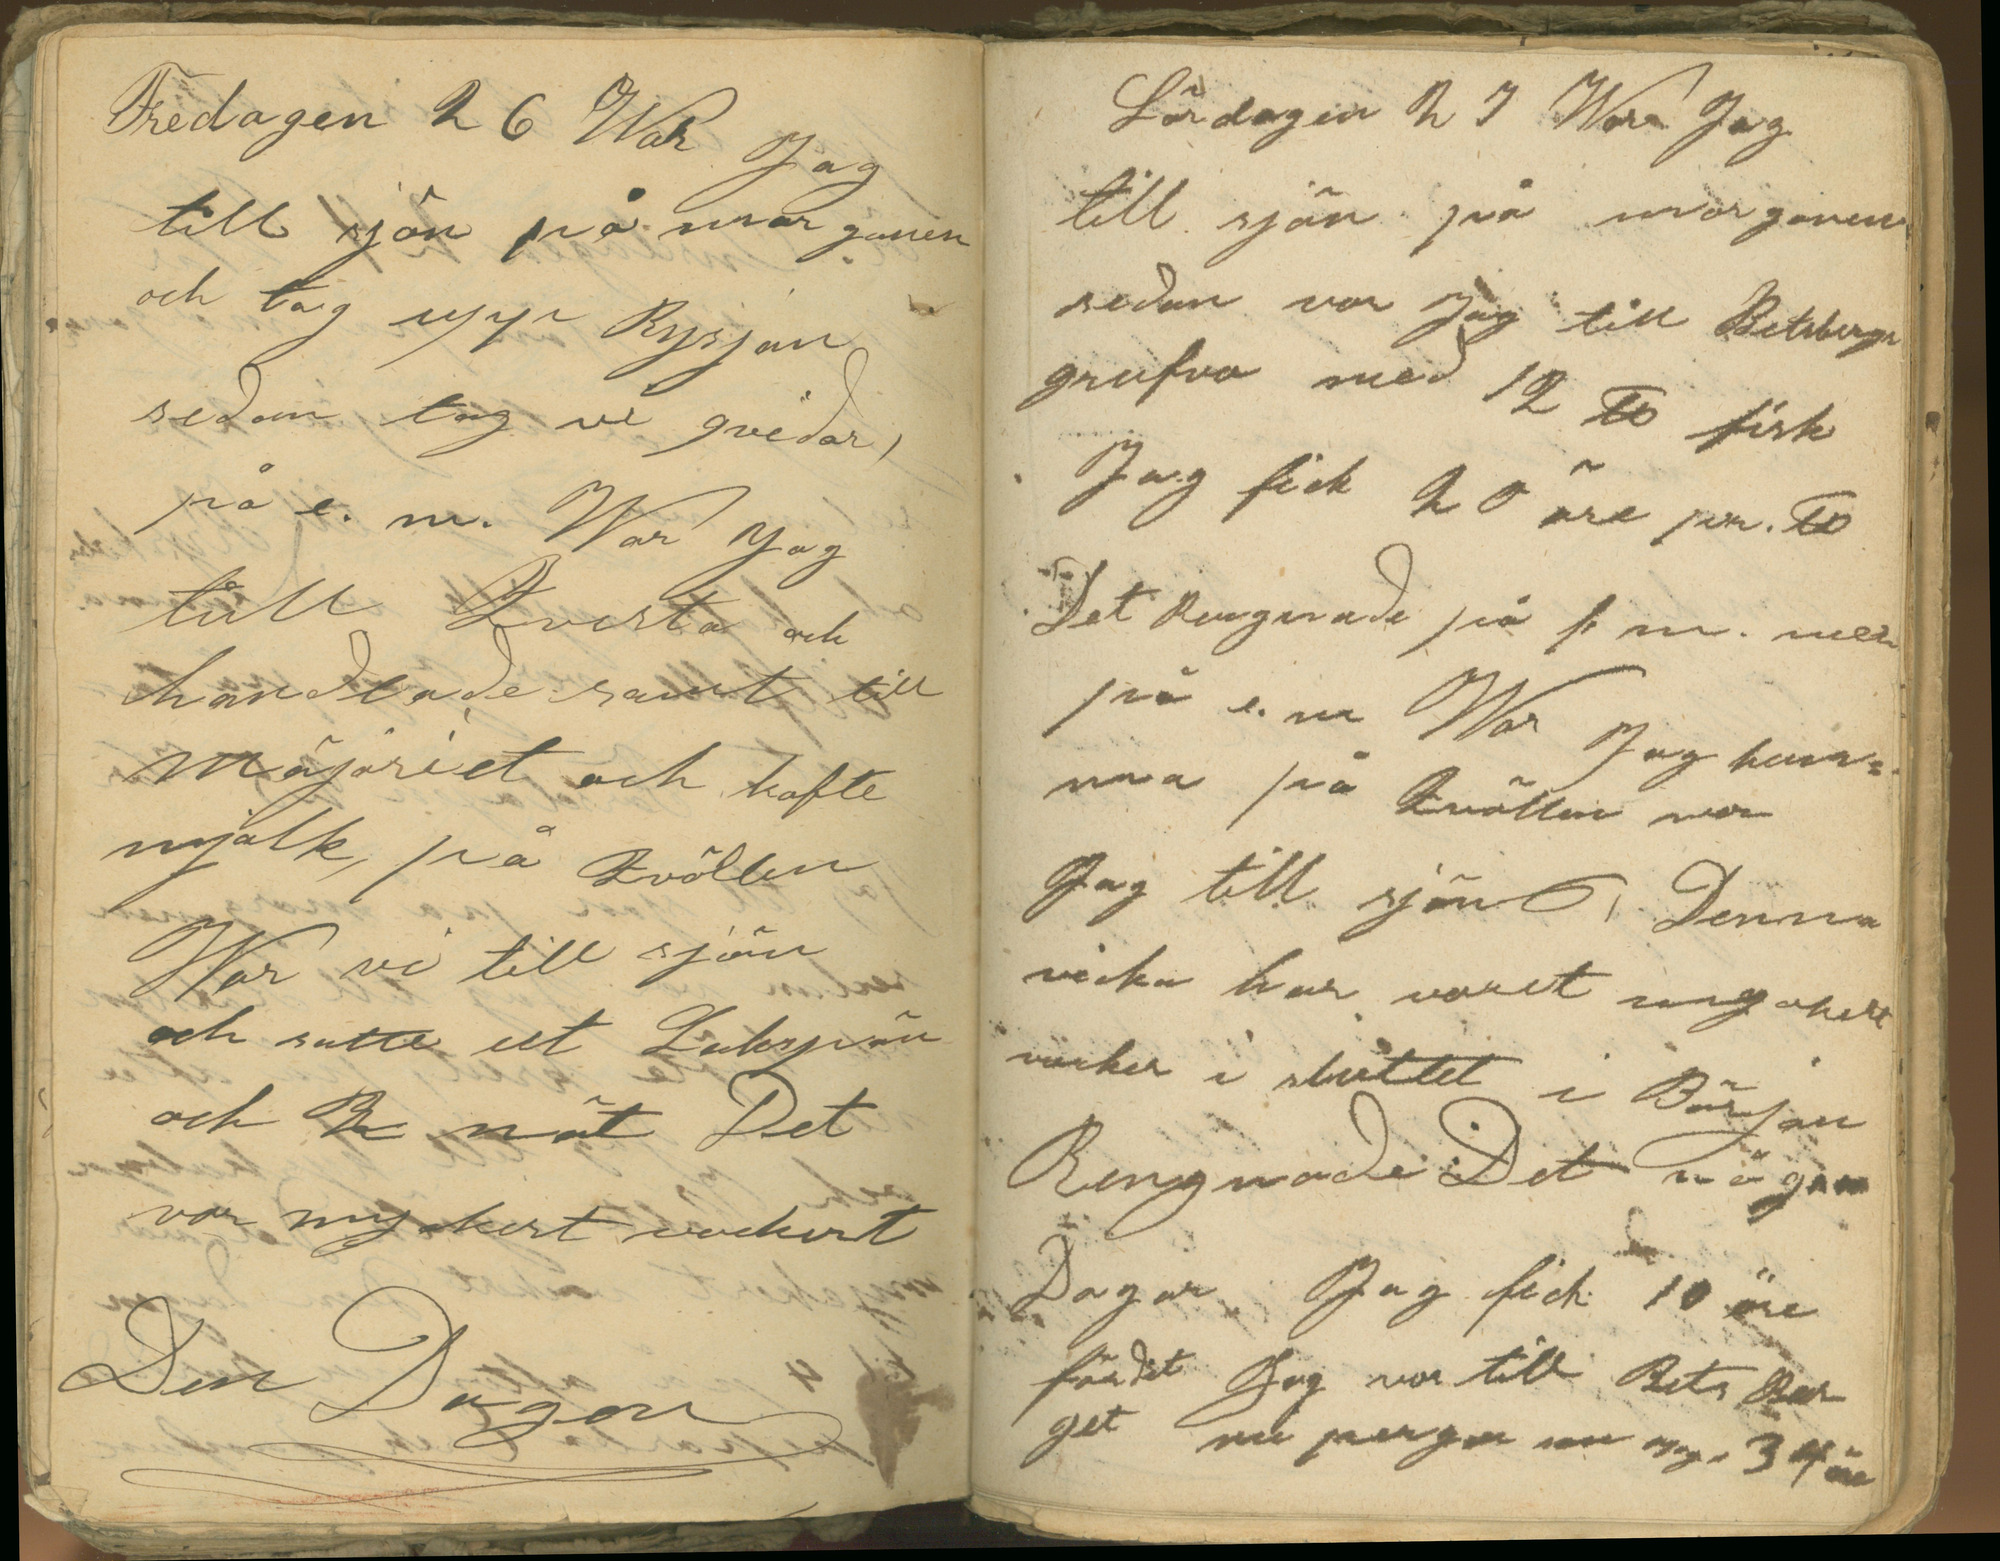 Fredagen 26 War Jag
till sjön på morgonen
och tog upp Rysjan
sedan tog vi gvidar,
på e. m. War Jag
till Qvista och
handlade samt till
mäjeriet och hafte
mjölk, på Qvällen
War vi till sjön
och satte ut Lakspön
och nät Det
var myckert vackert
Den Dagen
Lördagen 27 War Jag
till sjön på morgonen
sedan var Jag till Betsbergs
grufva med 12 ℔ fisk
Jag fick 20 öre pr. ℔
Det Rengnade på f m. men
på e. m War Jag hem=
ma på Qvällen var
Jag till sjön, Denna
vicka har varet myckert
vacker i sluttet i Början
Rengnade Det någon
Dagar Jag fick 10 öre
fördet Jag var till Bets Ber
get nu 34 öre